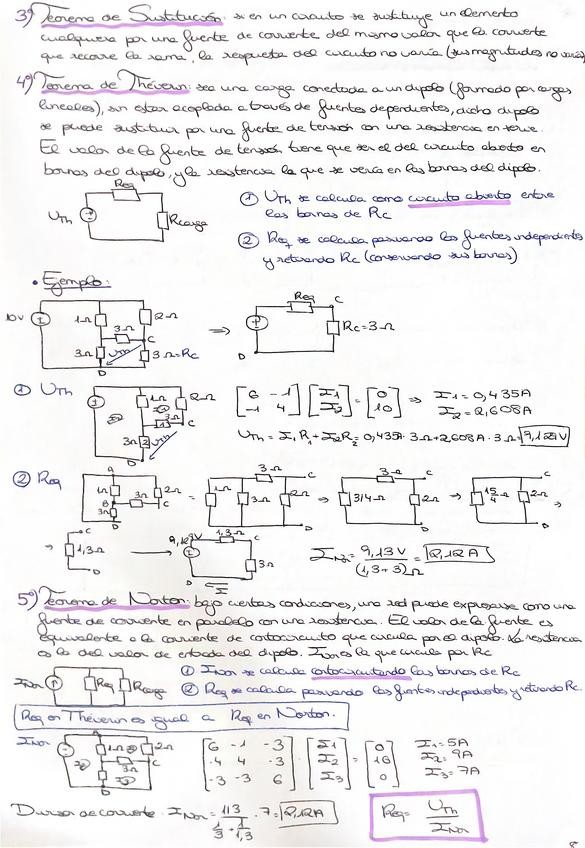 3º) Teorema de Sustitución: si en un circuito se sustituye un elemento
cualquiera por una fuente de corriente del mismo valor que la corriente
que recorre la rama, la respuesta del circuito no varía (sus magnitudes no varía)
4º) Teorema de Thévenin: sea una carga conectada a un dipolo (formado por cargas
lineales), sin estar acoplada a través de fuentes dependientes, dicho dipolo
se puede sustituir por una fuente de tensión con una resistencia en serie.
El valor de la fuente de tensión tiene que ser el del circuito abierto en
bornas del dipolo, y la resistencia la que se vería en las bornas del dipolo.
Req
UTh
Rcarga
① UTh se calcula como circuito abierto entre
las bornas de Rc
② Req se calcula pasivando las fuentes independientes
y retirando Rc (conservando sus bornas)
• Ejemplo:
10V
1Ω
2Ω
3Ω
C
3Ω
UTh
3Ω=Rc
D
⇒
Req
C
Rc=3Ω
D
① UTh
1Ω
2Ω
3Ω
C
3Ω
UTh
D
[6 -1
-1 4] [I1
I2] = [0
10] ⇒ I1=0,435A
I2=2,608A
UTh = I1R1+I2R2=0,435A·3Ω+2,608A·3Ω=9,129V
② Req
A
1Ω
2Ω
B
3Ω
C
3Ω
D
=
3Ω
C
1Ω
3Ω
2Ω
D
→
3Ω
C
3/4Ω
2Ω
D
→
C
15/4Ω
2Ω
D
→
→
C
1,3Ω
D
→
9,129V
1,3Ω
C
3Ω
D
I
INor = 9,13V/(1,3+3)Ω = 2,12A
5º) Teorema de Norton: bajo ciertas condiciones, una red puede expresarse como una
fuente de corriente en paralelo con una resistencia. El valor de la fuente es
equivalente a la corriente de cortocircuito que circula por el dipolo. La resistencia
es la del valor de entrada del dipolo. INor es la que circula por Rc
INor
Req
Rcarga
① INor se calcula cortocircuitando las bornas de Rc
② Req se calcula pasivando las fuentes independientes y retirando Rc.
Req en Thévenin es igual a Req en Norton.
INor
A
1Ω
2Ω
3Ω
C
D
[6 -1 -3
-1 4 -3
-3 -3 6] · [I1
I2
I3] = [0
10
0]
I1=5A
I2=9A
I3=7A
Divisor de corriente: INor = (1/3)/(1/3+1/1,3) · 7 = 2,12A
Req = UTh/INor
8